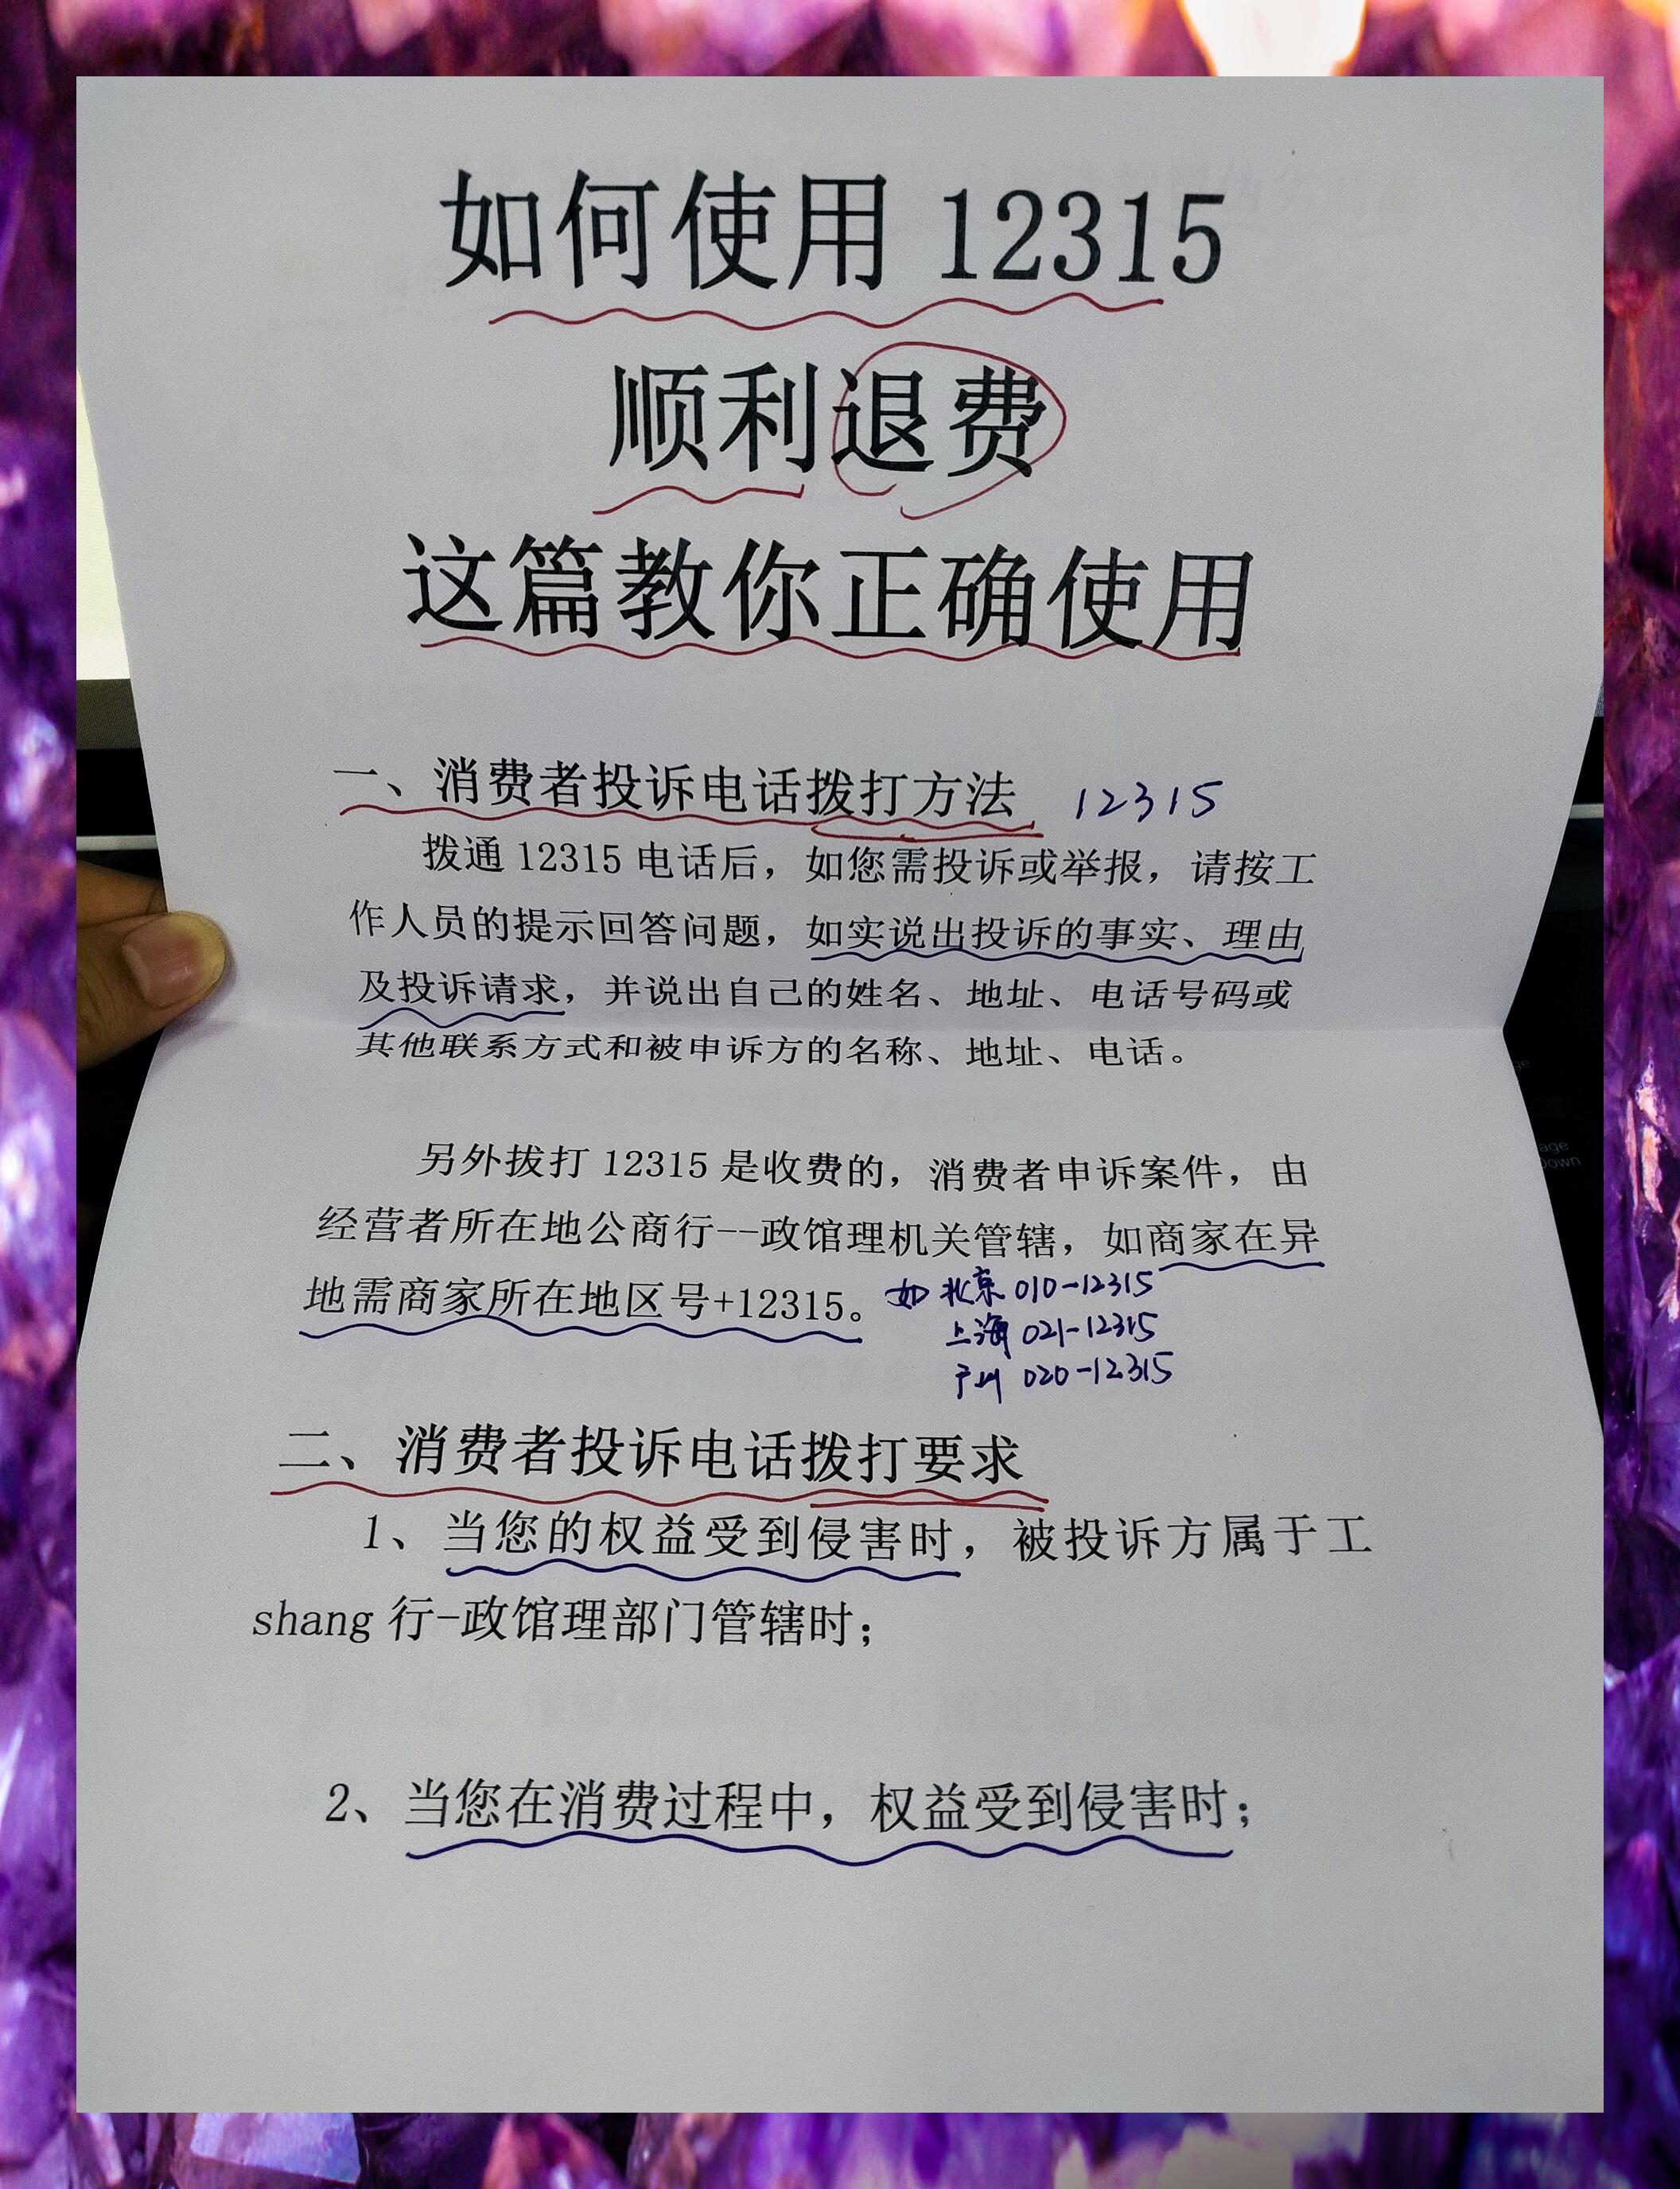 如何使用 12315
顺利退费
这篇教你正确使用
一、消费者投诉电话拨打方法 12315
拨通 12315 电话后，如您需投诉或举报，请按工
作人员的提示回答问题，如实说出投诉的事实、理由
及投诉请求，并说出自己的姓名、地址、电话号码或
其他联系方式和被申诉方的名称、地址、电话。
另外拔打 12315 是收费的，消费者申诉案件，由
经营者所在地公商行--政馆理机关管辖，如商家在异
地需商家所在地区号+12315。如 北京 010-12315
上海 021-12315
广州 020-12315
二、消费者投诉电话拨打要求
1、当您的权益受到侵害时，被投诉方属于工
shang 行-政馆理部门管辖时；
2、当您在消费过程中，权益受到侵害时；